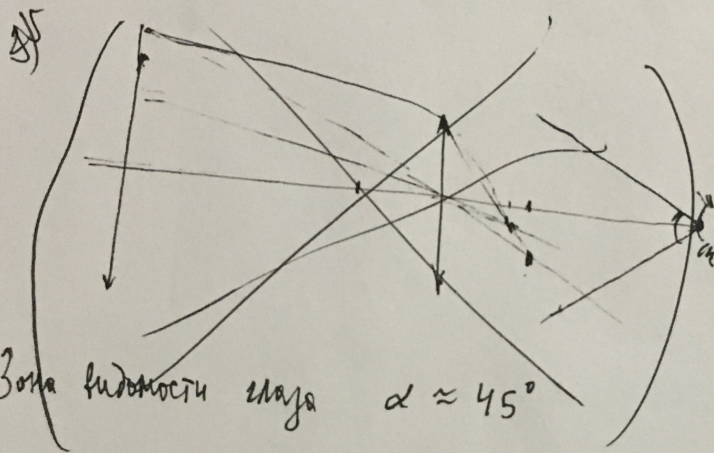 Зона видимости глаза α ≈ 45°